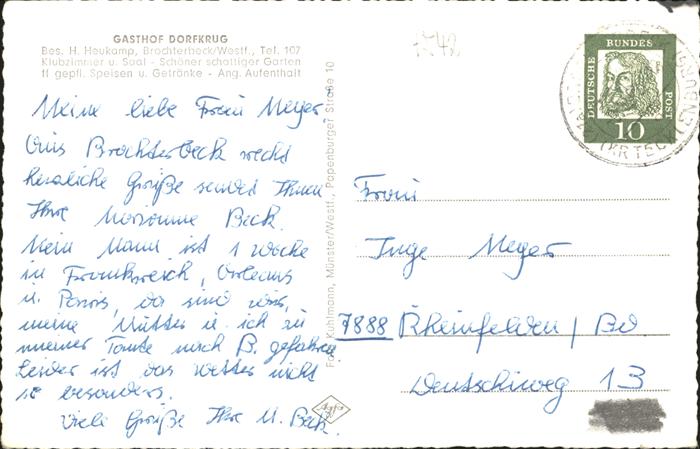 GASTHOF DORFKRUG
Bes. H. Heukamp, Brochterbeck/Westf., Tel. 107
Klubzimmer u. Saal - Schöner schattiger Garten
ff gepfl. Speisen u. Getränke - Ang. Aufenthalt
Meine liebe Frau Meyer
Aus Brochterbeck recht
herzliche Grüße sendet Ihnen
Ihre Marianne Beck.
Mein Mann ist 1 Woche
in Frankreich, Orleans
u. Paris, da sind wir,
meine Mutter u. ich zu
meiner Tante nach B. gefahren
Leider ist das Wetter nicht
so besonders.
Viele Grüße Ihre M. Beck.
Foto: Kuhlmann, Münster/Westf., Papenburger Straße 10
Agfa
DEUTSCHE BUNDES POST
10
(KR TECK
Frau
Inge Meyer
7888 Rheinfelden / Bd
Deutschiweg 13